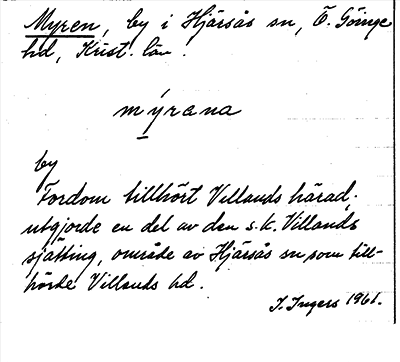 Myren, by i Hjärsås sn, Ö. Göinge
hd, Krist. län.
mýrana
by
Fordom tillhört Villands härad,
utgjorde en del av den s.k. Villands
sjätting, område av Hjärsås sn, som till-
hörde Villands hd.
I. Ingers 1961.